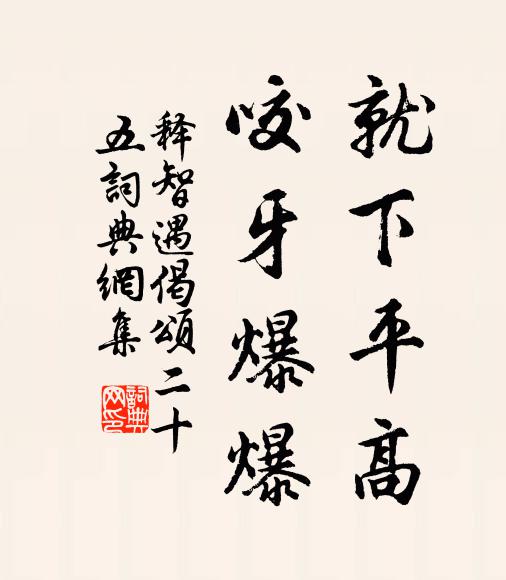 就下平高
咬牙爆爆
释智遇偈頌二十
五詞典網集
詞典
网印